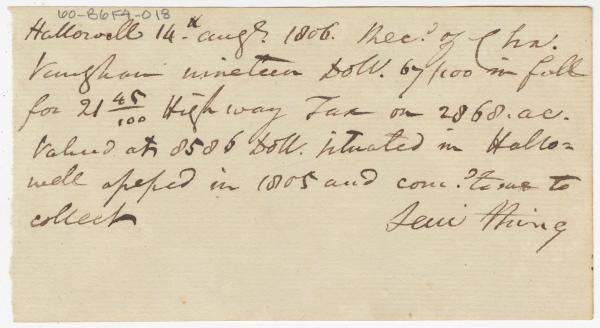 60-B6F4-018
Hallowell 14th augt. 1806. Rec.d of Cha.
Vaughan nineteen Doll. 67/100 in full
for 21 45/100 High way Tax on 2868. ac.
Valued at 8586 Doll. situated in Hallo=
well assessed in 1805 and com.d to me to
collect Levi Thing